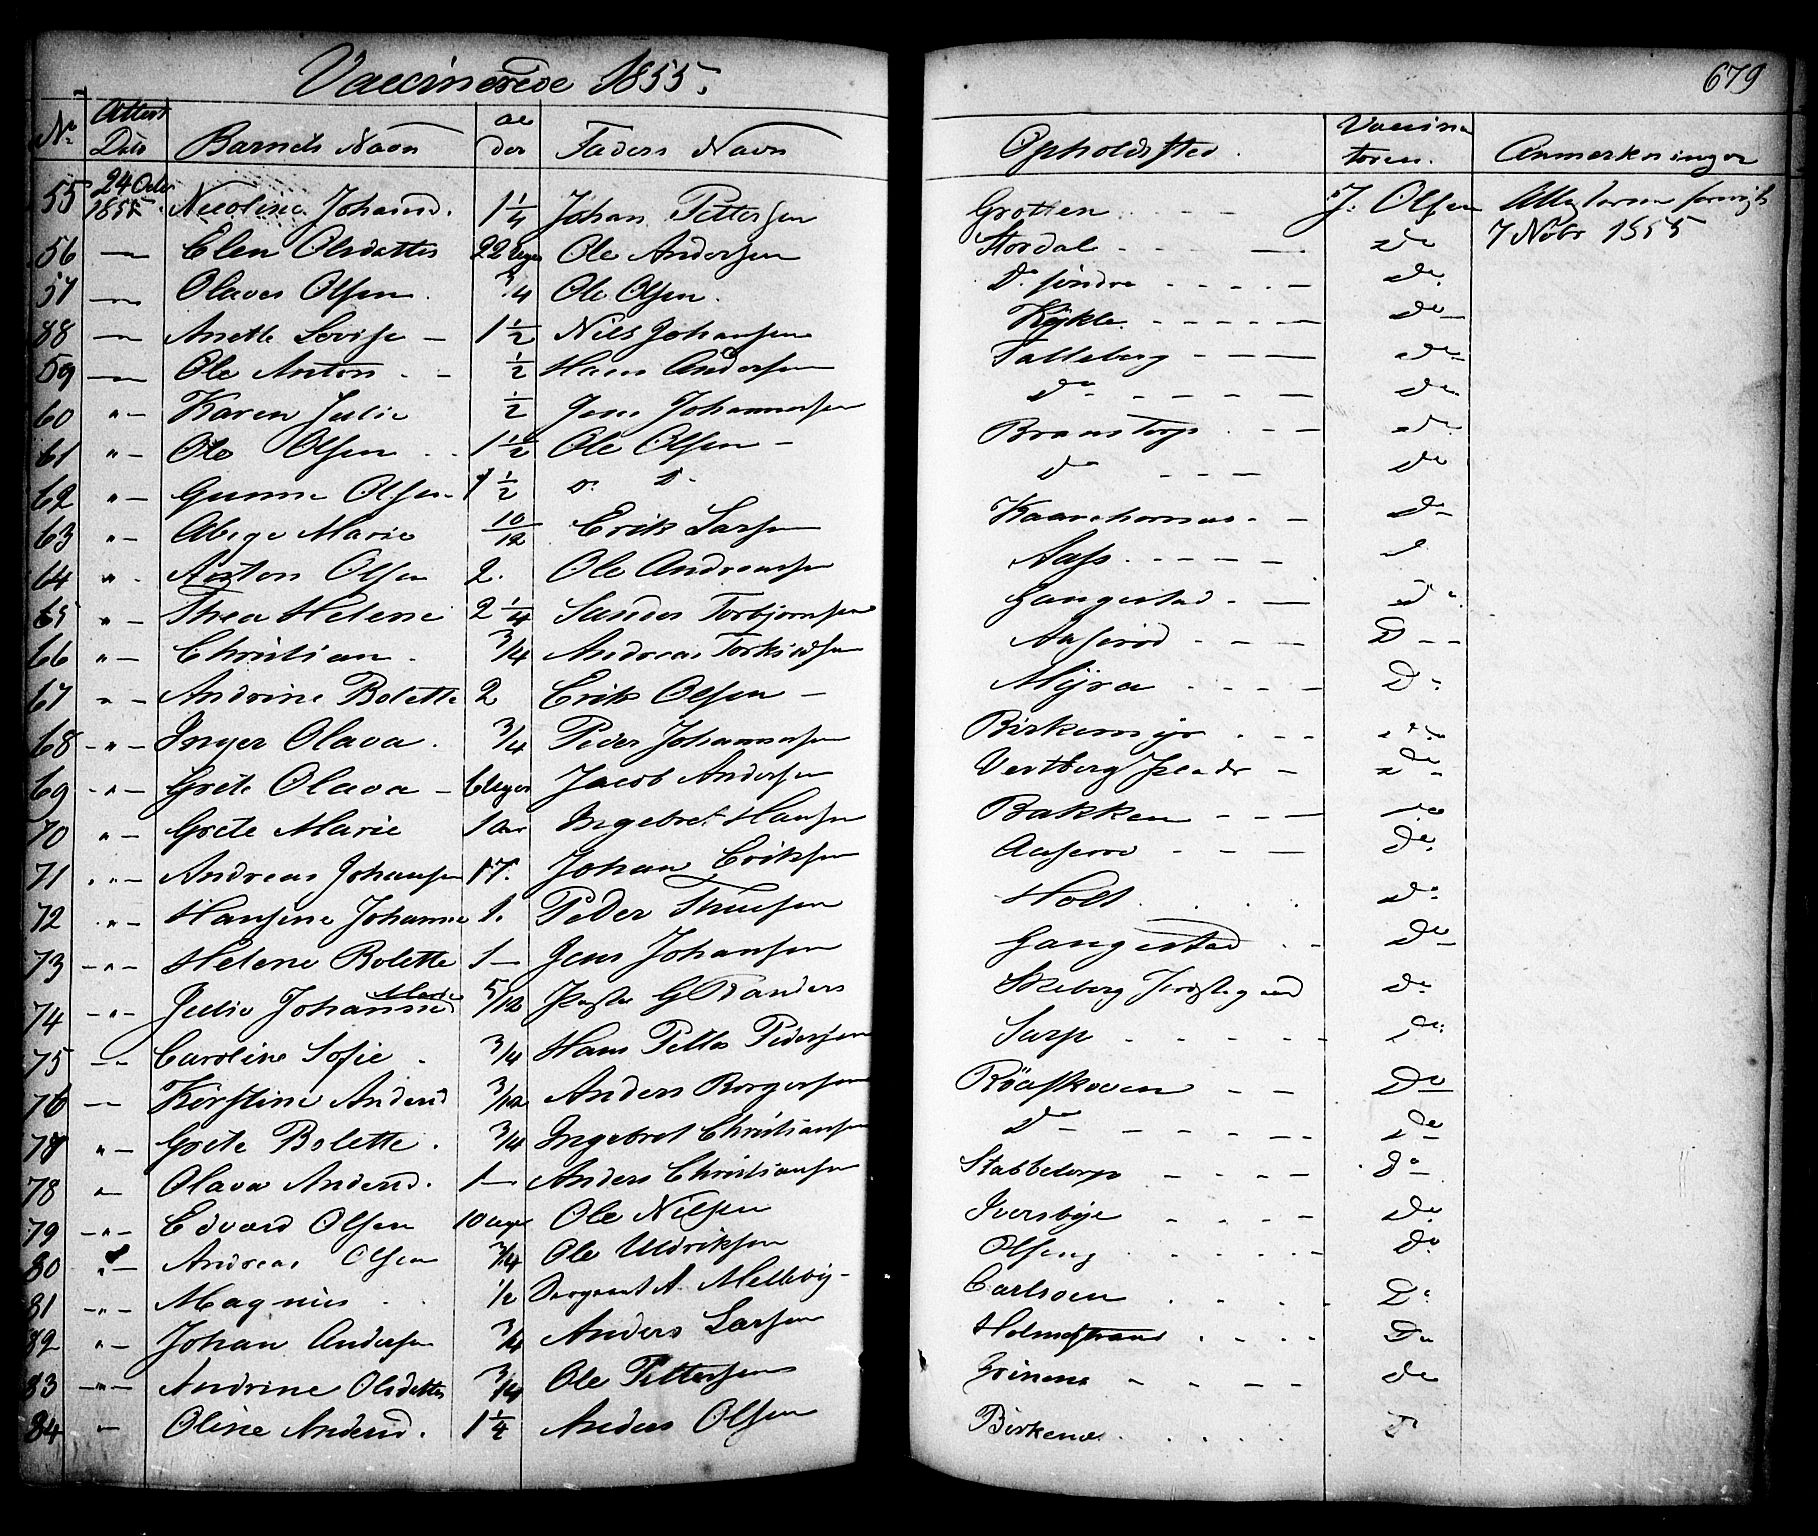 Vaccinerede 1855.
679
No Attest Dato Barnets Navn alder Faders Navn Opholdssted. Vaccinatoren. Anmerkninger
55 24 Octbr 1855 Nicoline Johansd. 1 1/4 Johan Pettersen Grotten J. Olsen Attesterne
56 — Elen Olsdatter 22 Uger Ole Andersen Stordal Do 7 Nobr 1855
57 — Olaves Olsen. 3/4 Ole Olsen. Do søndre Do
88 — Anette Lovise — 1 1/2 Nils Johansen Kykle Do
59 — Ole Anton 1/2 Hans Andersen Talleberg Do
60 " — Karen Julie 1/2 Jens Johannesen Do Do
61 " — Ole Olsen 1 1/2 Ole Olsen — Brunstorp Do
62 " — Gunne Olsen 1 1/2 D. D. Do Do
63 " — Marie 10/12 Erik Larsen Do
64 " Anton Olsen 2. Ole Andreassen Aass
65 " — Thea Helene 2 1/4 Sander Torbjørnsen Gangestad Do
66 " — Christian 3/4 Andreas Torkildsen Aaserød D
67 " — Andrine Bolette 2 Erik Olsen — Myra Do
68 — " — Inger Olava. 3/4 Peder Johannesen Birkemyr "
69 — " — Grete Olava — 6 Uger Jacob Andersen Vestberg Do
70 " — Grete Marie 1 Aar Ingebret Hansen Bakken Do
71 " — Andreas Johansen 17. Johan Eriksen Aaserø Do
72 " — Hansine Johanne 1. Peder Thuesen Holt Do
73 — " — Helene Bolette 1 — Jens Johansen Gangestad Do
74 — " — Julie Johanne Marie 5/12 G Skeberg Do
75 — Caroline Sofie 3/4 Hans Petter Pedersen Sarp Do
76 — Kirstine Andersd 3/12 Anders Borgersen Röaskoven Do
78 " — Grete Bolette. 3/4 Ingebret Christiansen Do Do
78 " — Olava Andersd. 1 — Anders Christiansen Stabbetorp Do
79 — " — Edvard Olsen 10 Uger Ole Nilsen Iversbye Do
80 " — Andreas Olsen 3/4 Ole Uldriksen Olseng Do
81 — " — Magnus 1/2 Sergeant A. Mellebÿ — Carlsoen Do
82 " — Johan Andersen 3/4 Anders Larsen Holmstrand Do
83 — " — Andrine Olsdatter 3/4 Ole Pettersen Grinene Do
84 " Oline Andersd. 1 1/4 Anders Olsen Birkene D